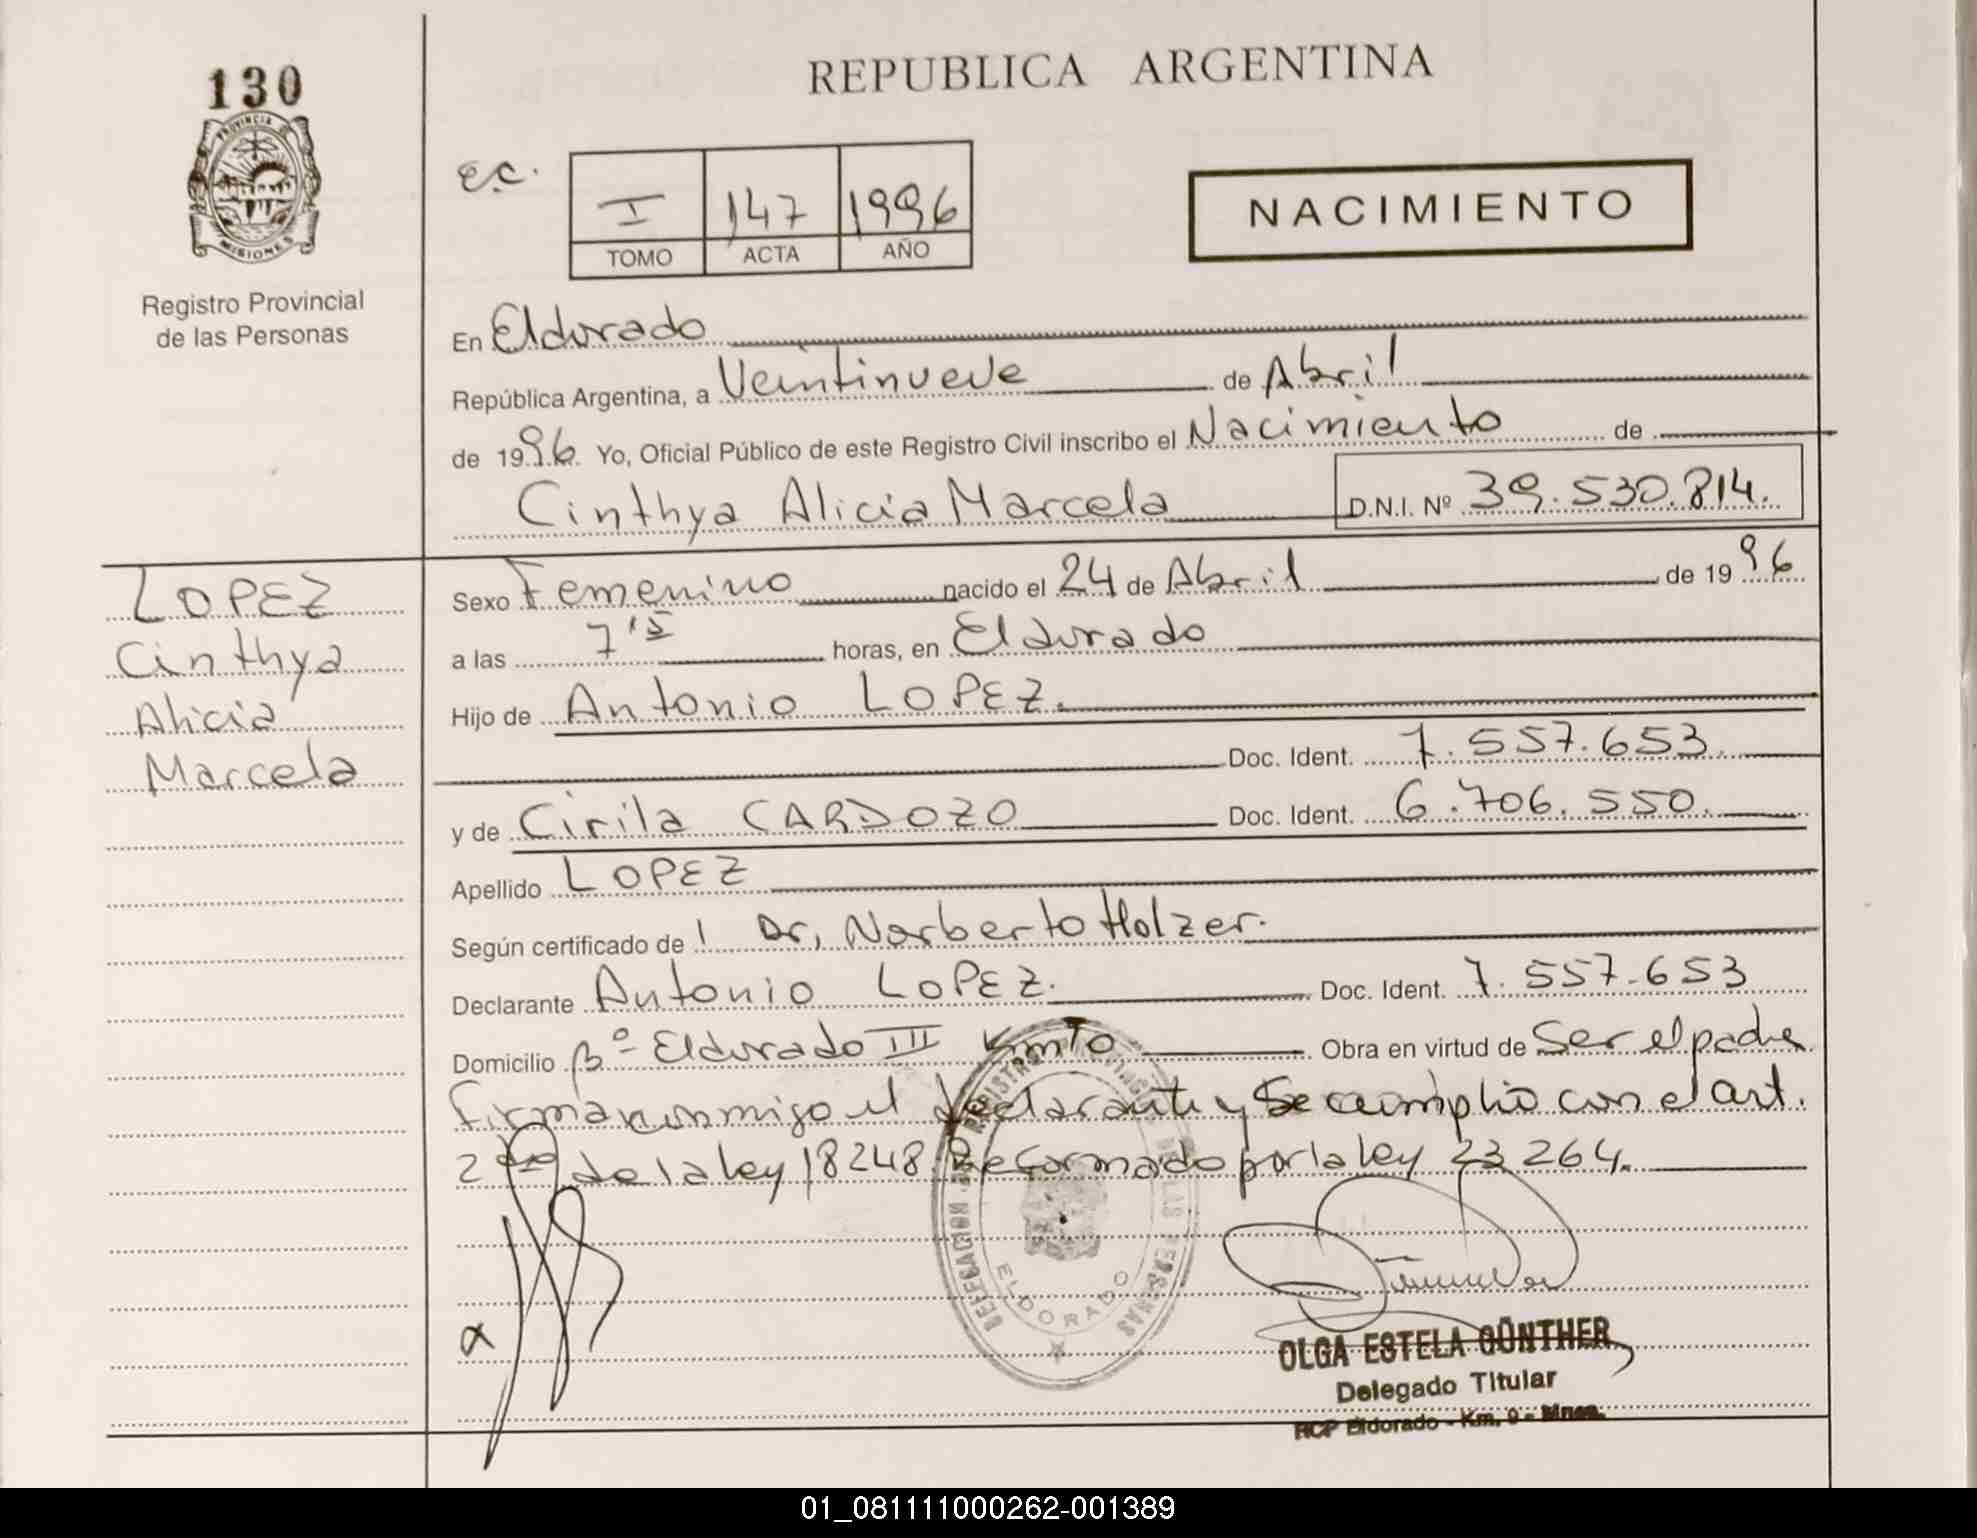 130
PROVINCIA DE
MISIONES
Registro Provincial
de las Personas
LOPEZ
Cinthya
Alicia
Marcela
REPUBLICA ARGENTINA
e.c.
I 147 1996
TOMO ACTA AÑO
NACIMIENTO
En Eldorado
República Argentina, a Veintinueve de Abril
de 1996. Yo, Oficial Público de este Registro Civil inscribo el Nacimiento de
Cinthya Alicia Marcela D.N.I. Nº 39.530.814.
Sexo Femenino nacido el 24 de Abril de 1996
a las 7'5 horas, en Eldorado
Hijo de Antonio LOPEZ.
Doc. Ident. 7.557.653.
y de Cirila CARDOZO Doc. Ident. 6.706.550.
Apellido LOPEZ
Según certificado de Dr, Norberto Holzer.
Declarante Antonio LOPEZ. Doc. Ident. 7.557.653
Domicilio Bº Eldorado III Km 10 Obra en virtud de Ser el padre
firma conmigo el declarante y Se cumplio con el art.
2 de la ley 18248 Reformado por la ley 23264.
DELEGACION DEL REGISTRO DE LAS PERSONAS
ELDORADO
OLGA ESTELA GÜNTHER
Delegado Titular
RCP Eldorado - Km. 9 - Mnes.
01_081111000262-001389